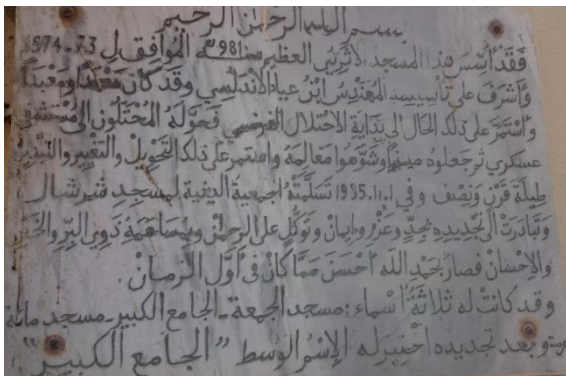 بسم الله الرحمن الرحيم
فقد أسس هذا المسجد الأثري العظيم سنة 981 هـ الموافق ل 73-1574
وأشرف على تأسيسه المهندس ابن عياد الأندلسي وقد كان ومعبدا
واستمر على ذلك الحال إلى بداية الاحتلال الفرنسي فحوله المحتلون إلى مستشفى
عسكري ثم جعلوه وشوهوا معالمه واستمر على ذلك التحويل والتغيير والتبديل
طيلة قرن ونصف وفي 1.11.1985 تسلمته الجمعية الدينية لمسجد شرشال
وتبادرت الى تجديده بجد وعزم وايمان وتوكل على الرحمن وبمساهمة ذوي البر والخير
والإحسان فصار بحمد الله أحسن مما كان في أول الزمان.
وقد كانت له ثلاثة أسماء: مسجد الجمعة - الجامع الكبير - مسجد مائة
وبعد تجديده اختير له الإسم الوسط "الجامع الكبير"